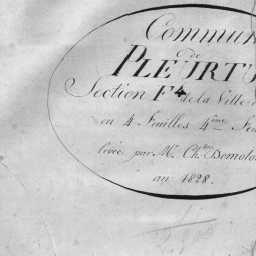 Commun
de
PLEURTU
Section F4 de la Ville
en 4 Feuilles 4ème Feu
levée par Mr. Ch.les Demolo
an 1828.